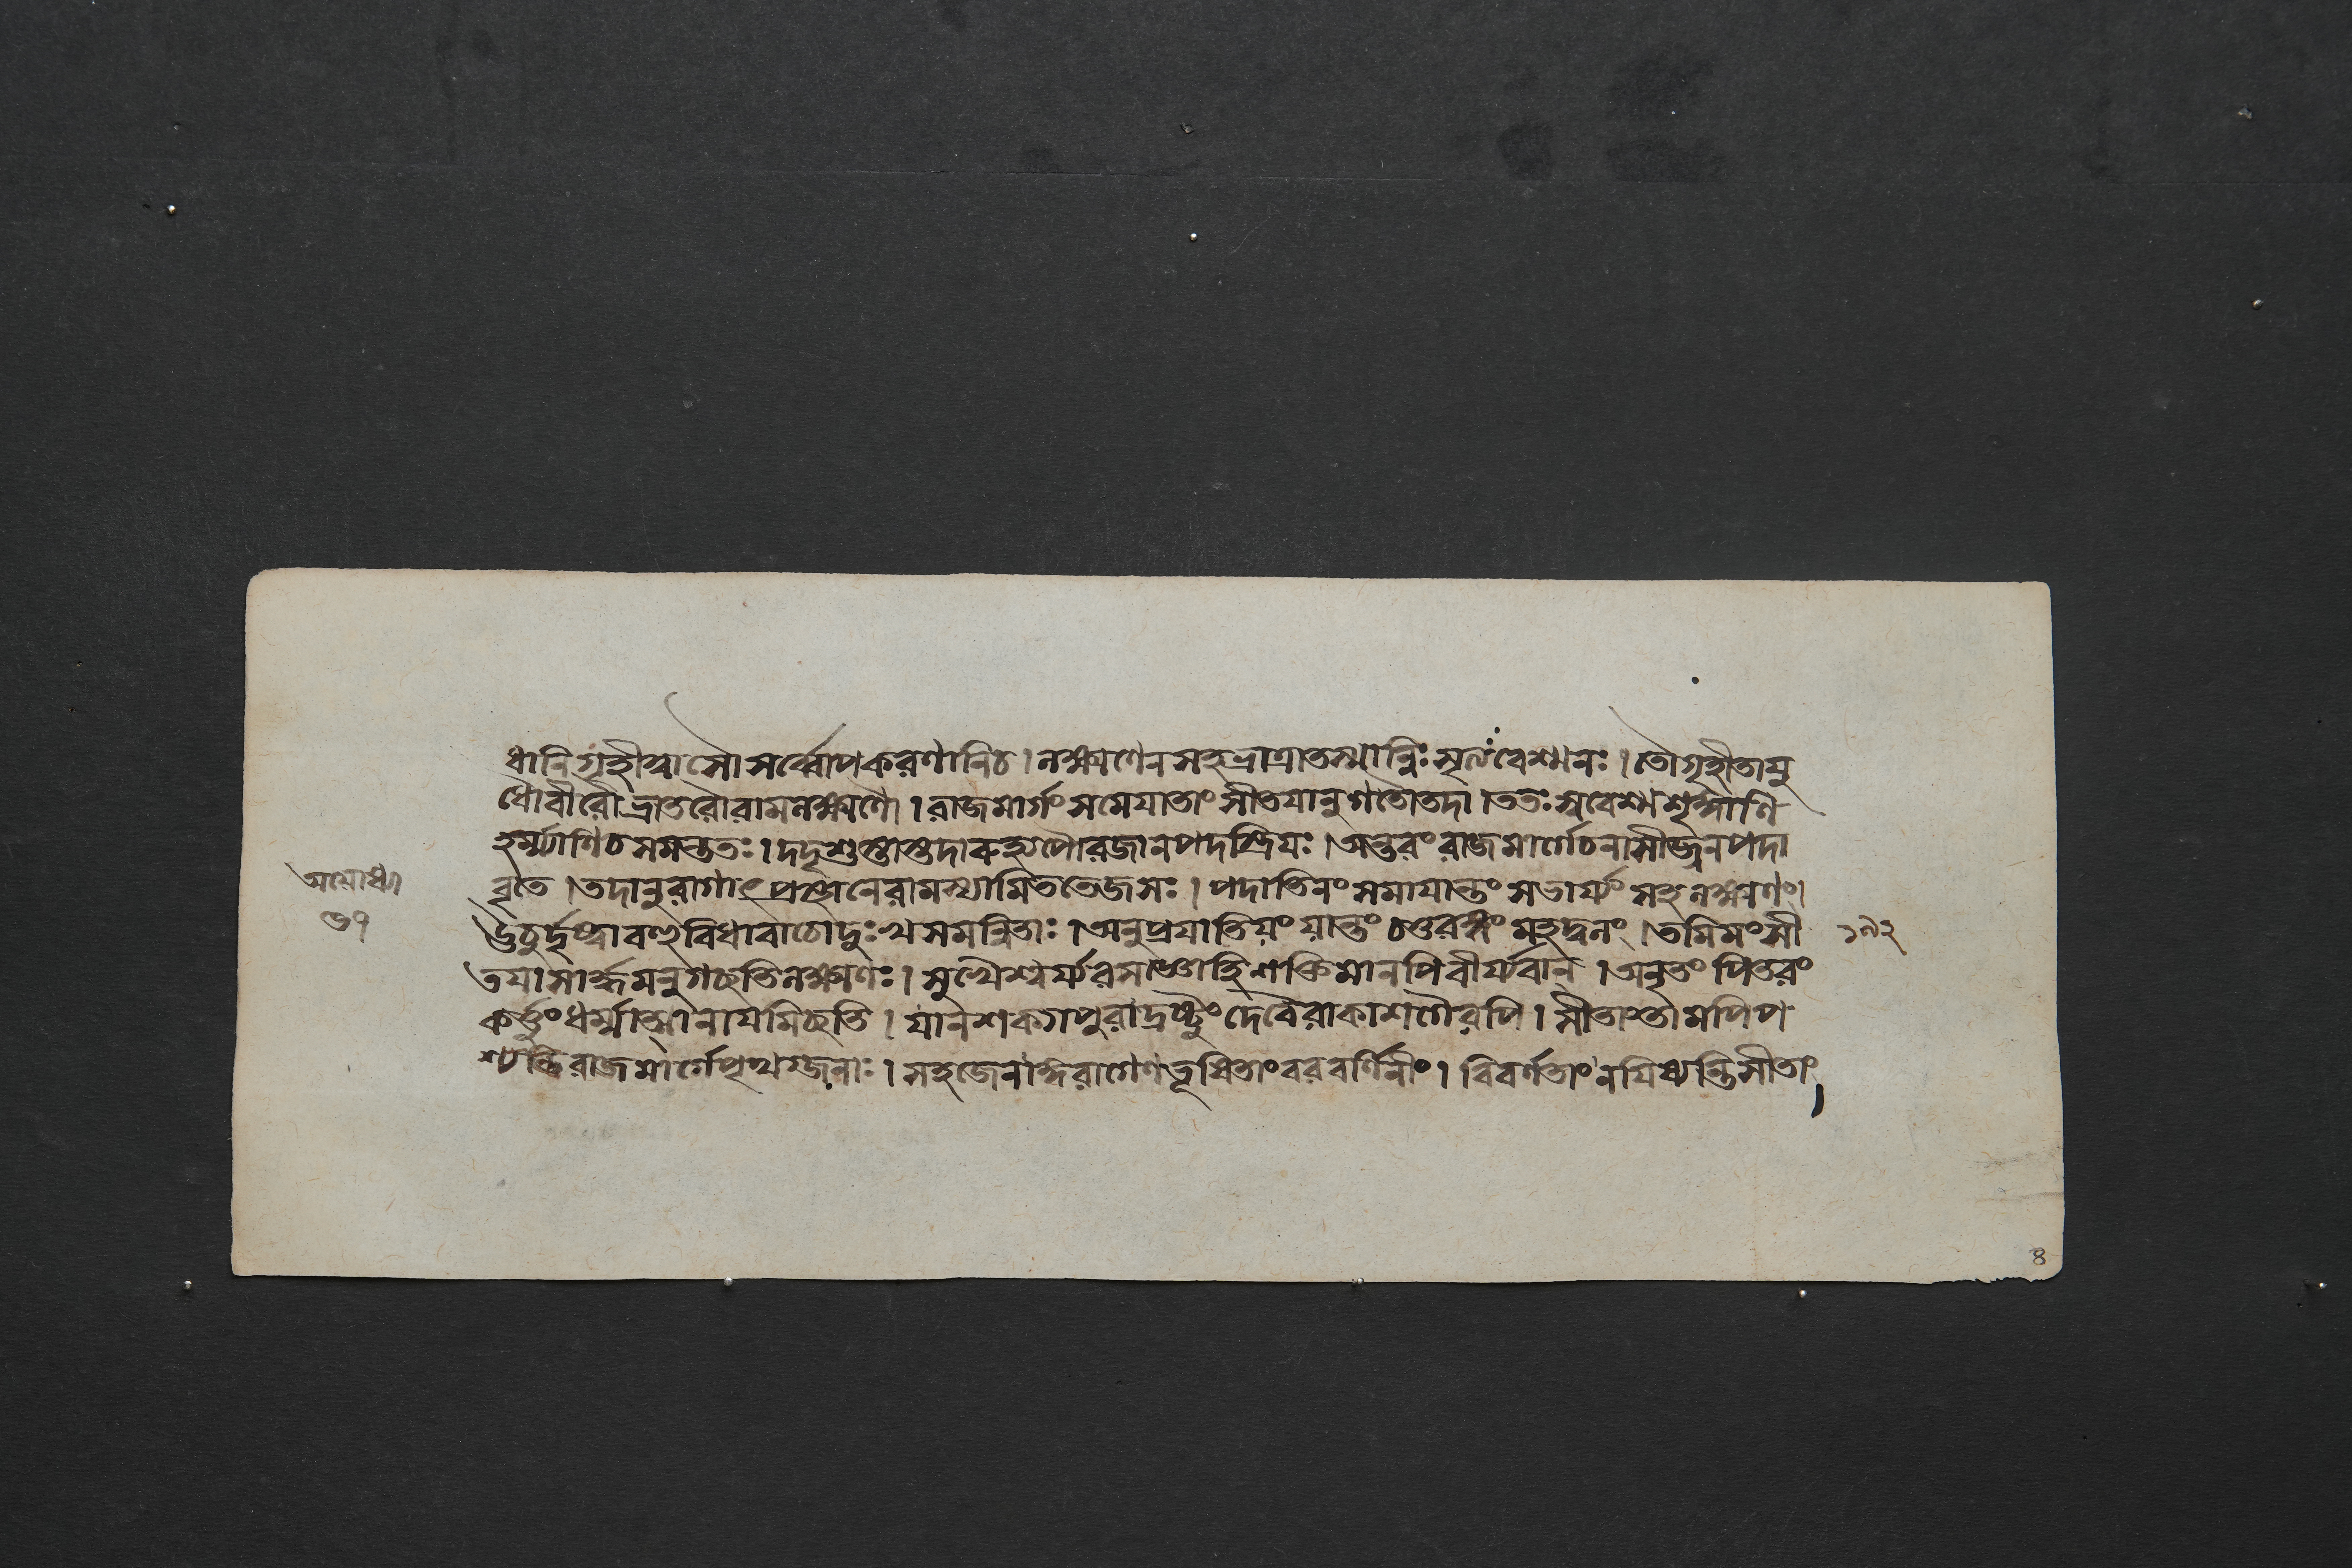 ধানিগৃহীত্বাসৌসর্ব্বোপকরণানিচ। লক্ষ্মণেনসহভ্রাত্রাতস্মান্নিঃসৃতবেশ্মনঃ। তৌগৃহীতায়ু
ধৌবীরৌভ্রাতরৌরামলক্ষ্মণৌ। রাজমার্গং সমেযাতাং সীতযানুগতৌতদা। ততঃ সুবেশ্মশৃঙ্গাণি
হর্ম্ম্যাণিচসমন্ততঃ। দদৃশুস্তাস্তদারুহ্যপৌরজানপদস্ত্রিযঃ। অন্তরং রাজমার্গেচনাসীজ্জনপদা
অযোধ্যা
বৃতে। তদানুরাগাৎপ্রস্থানেরামস্যামিততেজসঃ। পদাতিনং সমাযান্তং সভার্য্যং সহলক্ষ্মণং।
৬৭
ঊচুর্দৃষ্ট্বাবহুবিধাবাচোদুঃখসমন্বিতাঃ। অনুপ্রযাতিযং যান্তং চতুরঙ্গং মহদ্বলং। তমিমং সী
১৯২
তযাসার্দ্ধমনুগচ্ছতিলক্ষ্মণঃ। সুখৈশ্বর্য্যরসজ্ঞোহিশক্তিমানপিবীর্য্যবান্। অনৃতং পিতরং
কর্ত্তুং ধর্ম্মাত্মানাযমিচ্ছতি। যানশক্যাপুরাদ্রষ্টুং দেবৈরাকাশগৈরপি। সীতাংতামপিপ
শ্যন্তিরাজমার্গেপৃথগ্জনাঃ। সহজেনাঙ্গরাগেণভূষিতাং বরবর্ণিনীং। বিবর্ণতাং নযিষ্যন্তিসীতাং
৪